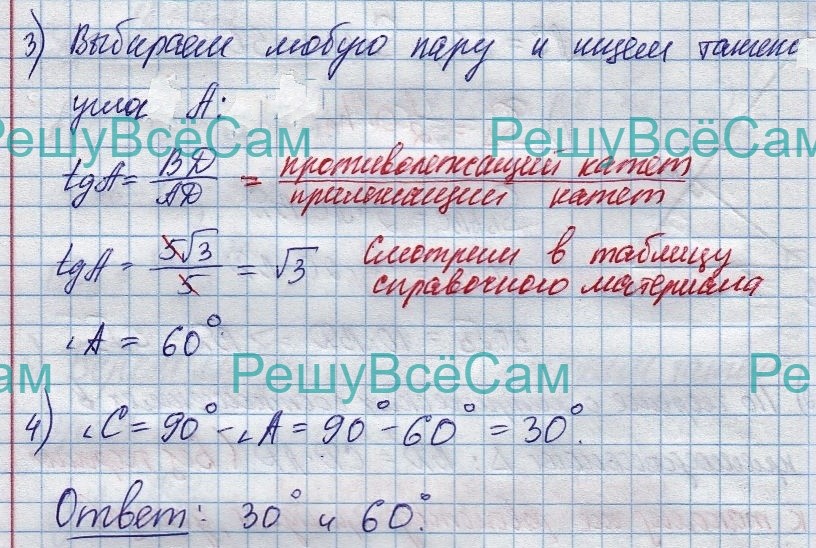 3) Выбираем любую пару и ищем тангенс
угла A:
РешуВсёСам РешуВсёСам
tgA = BD/AD = противолежащий катет/прилежащий катет
tgA = 5√3/5 = √3 Смотрим в таблицу
справочного материала
∠A = 60°.
Сам РешуВсёСам Ре
4) ∠C = 90° - ∠A = 90° - 60° = 30°.
Ответ: 30° и 60°.